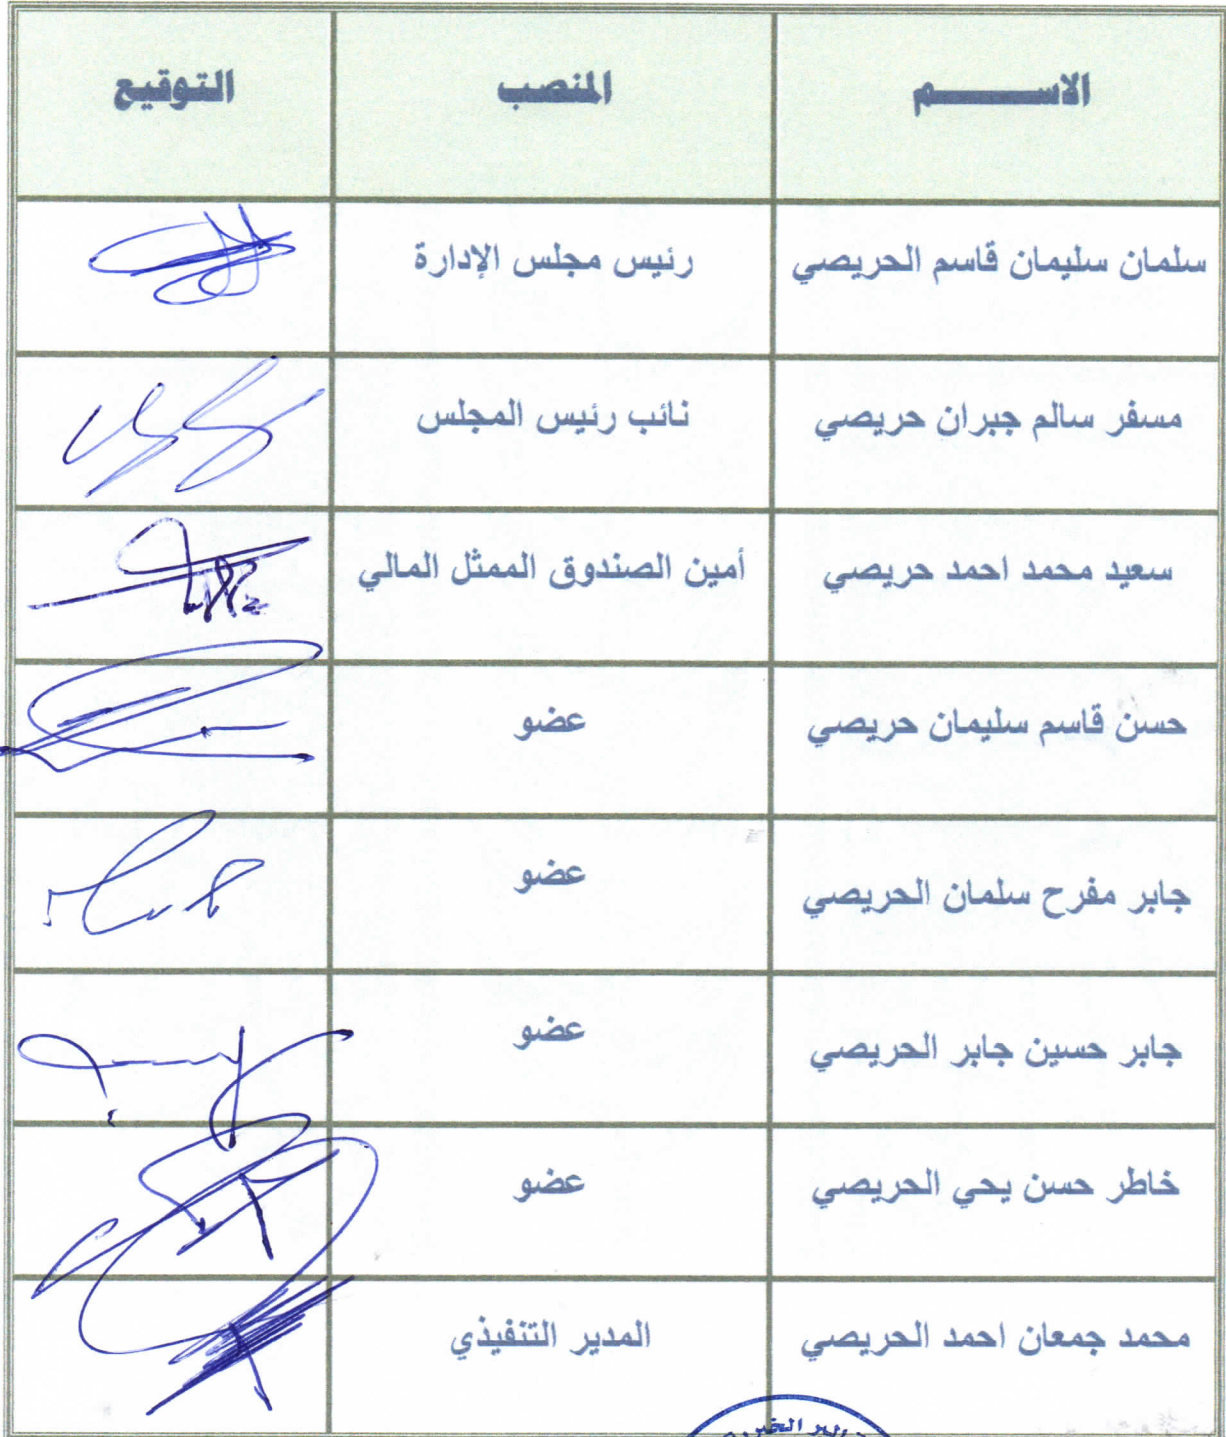 الاســـــم المنصب التوقيع
سلمان سليمان قاسم الحريصي رئيس مجلس الإدارة
مسفر سالم جبران حريصي نائب رئيس المجلس
سعيد محمد احمد حريصي أمين الصندوق الممثل المالي
حسن قاسم سليمان حريصي عضو
جابر مفرح سلمان الحريصي عضو
جابر حسين جابر الحريصي عضو
خاطر حسن يحي الحريصي عضو
محمد جمعان احمد الحريصي المدير التنفيذي